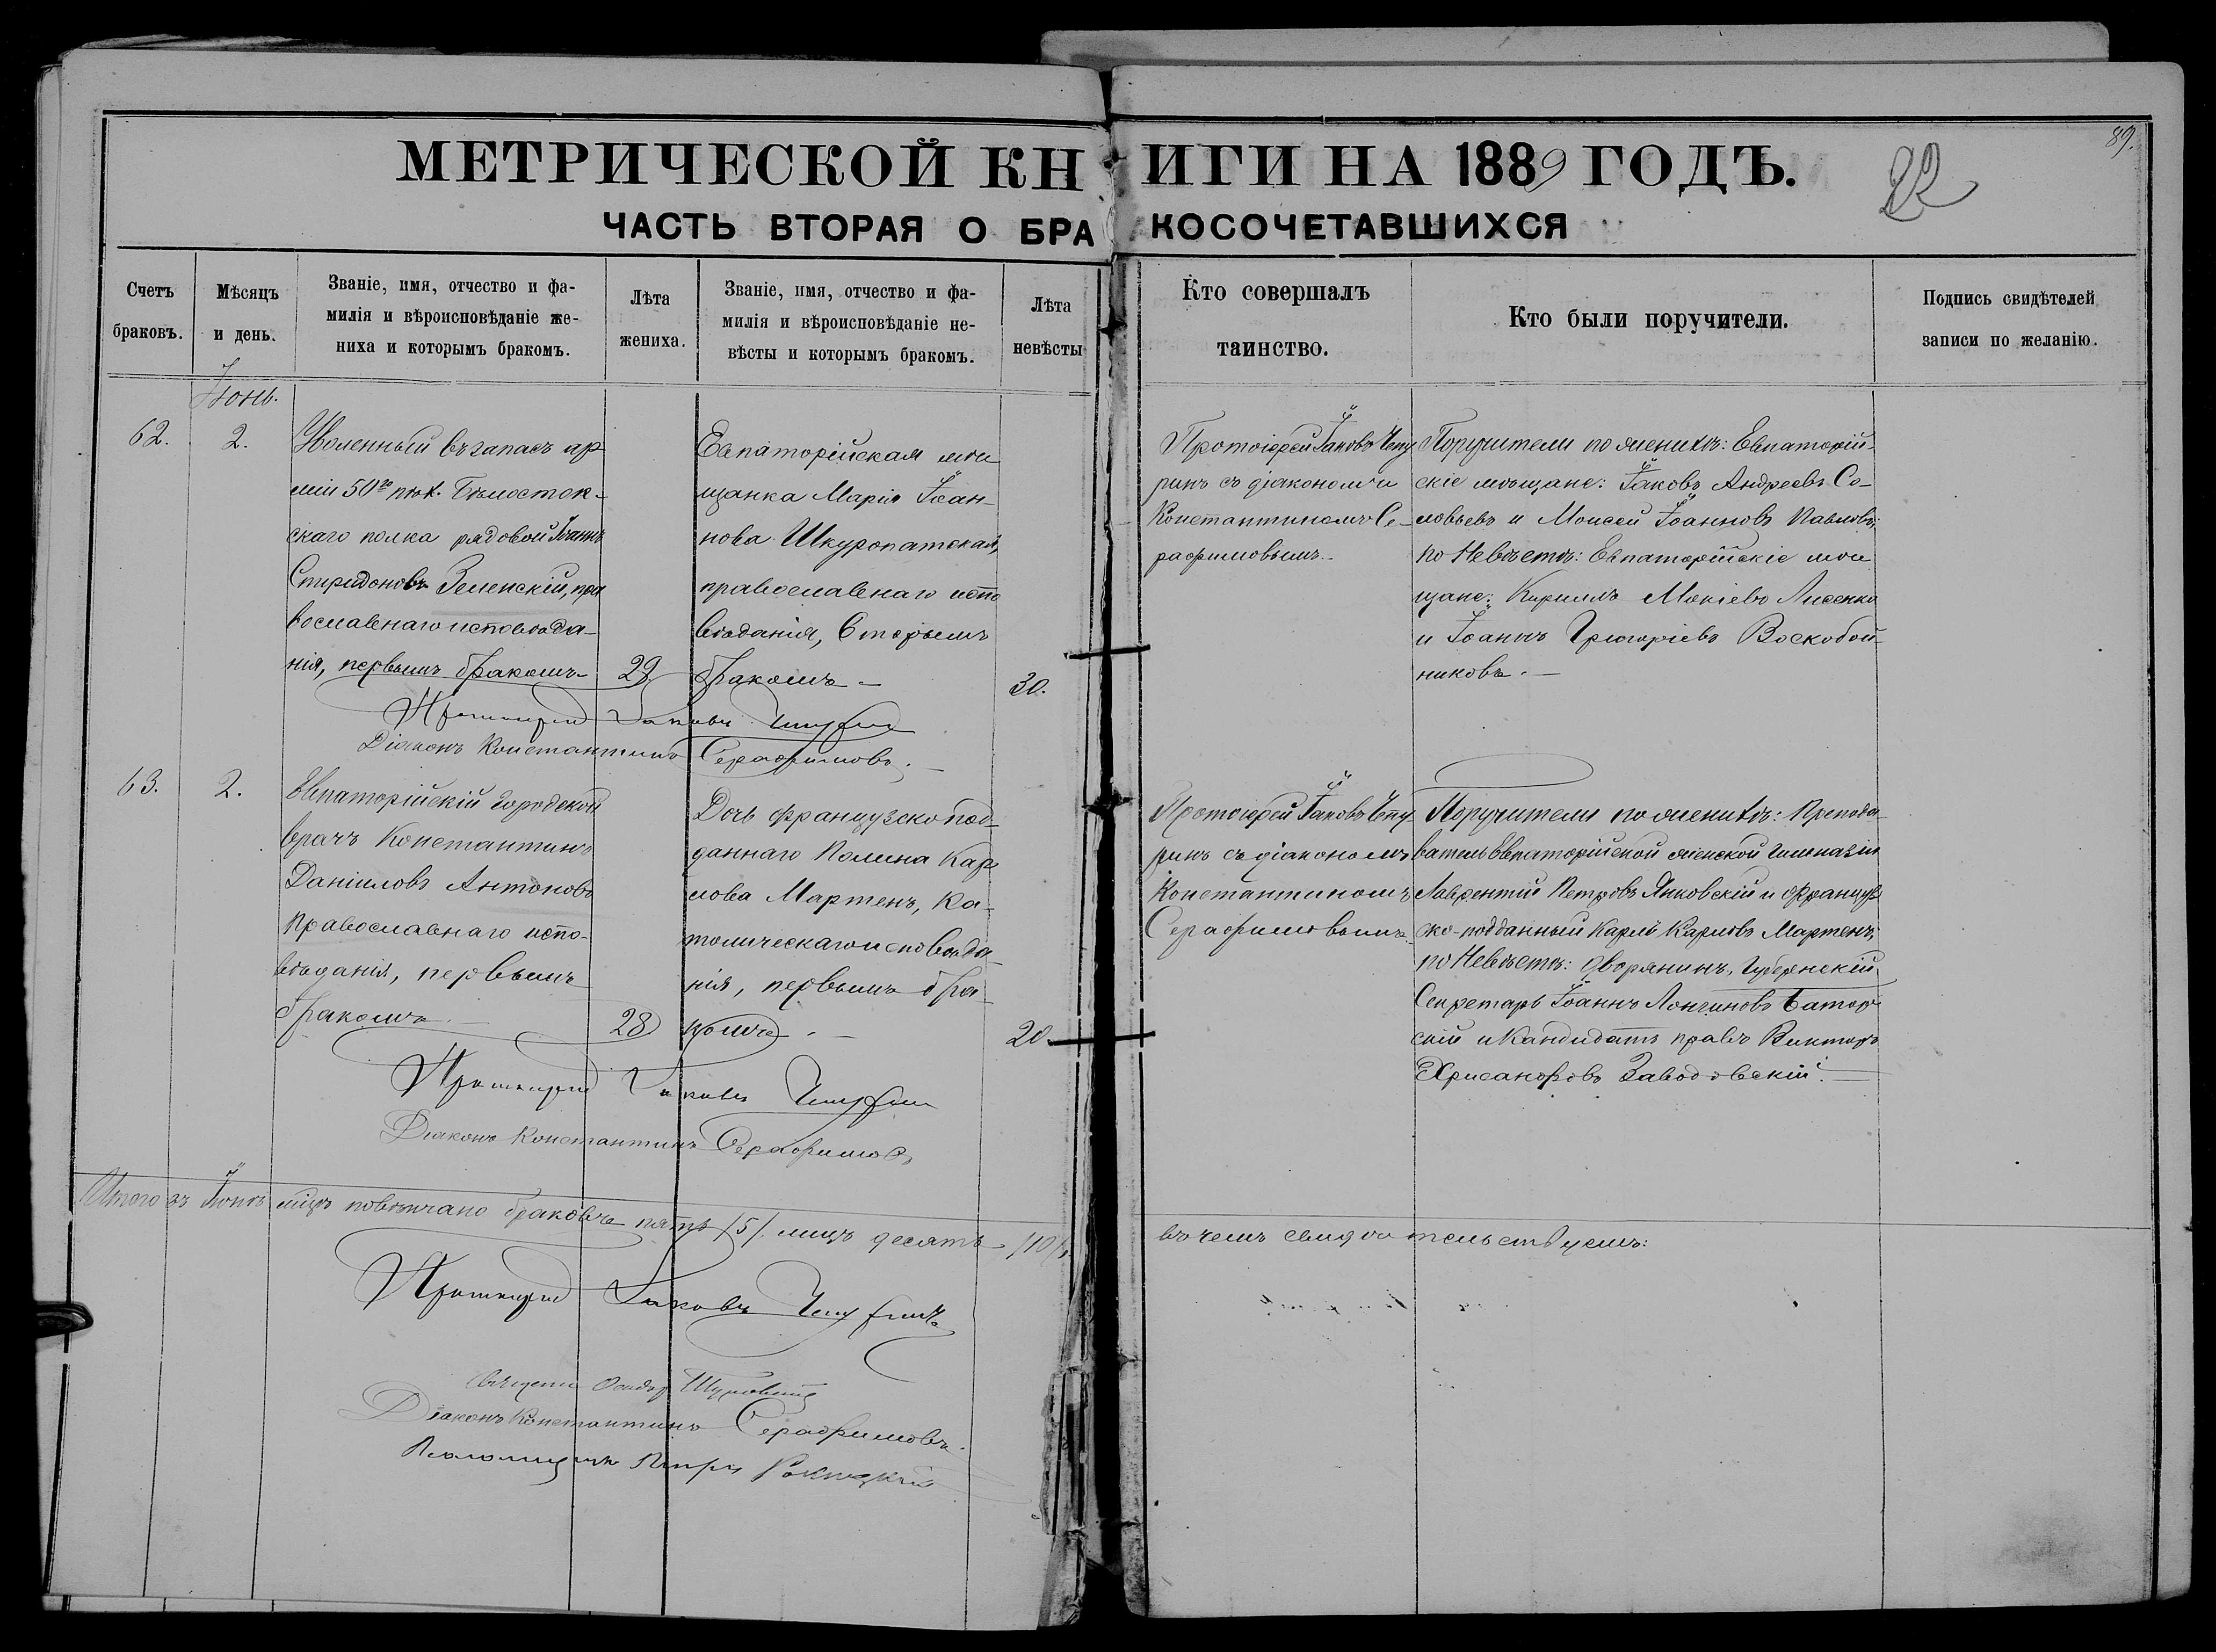 89.
МЕТРИЧЕСКОЙ КНИГИ НА 1889 ГОДЪ.
22
ЧАСТЬ ВТОРАЯ О БРАКОСОЧЕТАВШИХСЯ
Счетъ
браковъ.
Мѣсяцъ
и день.
Званіе, имя, отчество и фа-
милія и вѣроисповѣданіе же-
ниха и которымъ бракомъ.
Лѣта
жениха.
Званіе, имя, отчество и фа-
милія и вѣроисповѣданіе не-
вѣсты и которымъ бракомъ.
Лѣта
невѣсты
Кто совершалъ
таинство.
Кто были поручители.
Подпись свидѣтелей
записи по желанію.
Іюнь.
62.
2.
Уволенный въ запасъ ар
міи 50го пѣх. Бѣлосток-
скаго полка рядовой Іоаннъ
Спиридоновъ Зеленскій, пра
вославнаго исповѣда-
нія, первымъ бракомъ
29.
Евпаторійская мѣ
щанка Марія Іоан-
нова Шкуропатская,
православнаго испо
вѣданія, вторымъ
бракомъ
30.
Протоіерей Іаковъ Чепу
ринъ съ діакономъ
Константиномъ Се-
рафимовымъ.
Поручители по женихѣ: Евпаторій-
скіе мѣщане: Іаковъ Андреевъ Со-
ловьевъ и Моисей Іоанновъ Павловъ;
по Невѣстѣ: Евпаторійскіе мѣ
щане: Кириллъ Мокіевъ Лисенко
и Іоаннъ Григоріевъ Воскобой-
никовъ.
Протоіерей Іаковъ Чепуринъ
Діаконъ Константинъ Серафимовъ.
63.
2.
Евпаторійскій городской
врачъ Константинъ
Даніиловъ Антоновъ
православнаго испо-
вѣданія, первымъ
бракомъ
28
Дочь французско под-
даннаго Полина Кар
лова Мартенъ, ка-
толическаго исповѣда-
нія, первымъ бра-
комъ
20.
Протоіерей Іаковъ Чепу-
ринъ съ діакономъ
Константиномъ
Серафимовымъ.
Поручители по женихѣ: Препода-
ватель Евпаторійской женской гимназіи
Лаврентій Петровъ Янковскій и француз
ско-подданный Карлъ Карловъ Мартенъ;
по Невѣстѣ: дворянинъ, Губернскій
Секретарь Іоаннъ Лонгиновъ Батор
скій и Кандидатъ правъ Викторъ
Хрисанфовъ Заводовскій.
Протоіерей Іаковъ Чепуринъ
Діаконъ Константинъ Серафимовъ
Итого въ Іюнѣ мцѣ повѣнчано браковъ пять /5/. лицъ десять /10/,
въ чемъ свидѣтельствуемъ:
Протоіерей Іаковъ Чепуринъ
Діаконъ Константинъ Серафимовъ.
Псаломщикъ Петръ